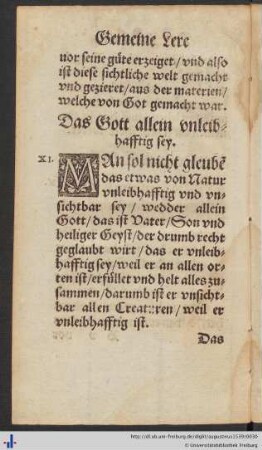 Gemeine Lere
uor seine güte erzeiget/vnd also
ist diese sichtliche welt gemacht
vnd gezieret/aus der materien/
welche von Got gemacht war.
Das Gott allein vnleib-
hafftig sey.
XI. MAn sol nicht gleubē
das etwas von Natur
vnleibhafftig vnd vn-
sichtbar sey/wedder allein
Gott/das ist Vater/Son vnd
heiliger Geyst/der drumb recht
geglaubt wirt/das er vnleib-
hafftig sey/weil er an allen or-
ten ist/erfüllet vnd helt alles zu-
sammen/darumb ist er vnsicht-
bar allen Creat::ren/weil er
vnleibhafftig ist.
Das
© Universitätsbibliothek Freiburg